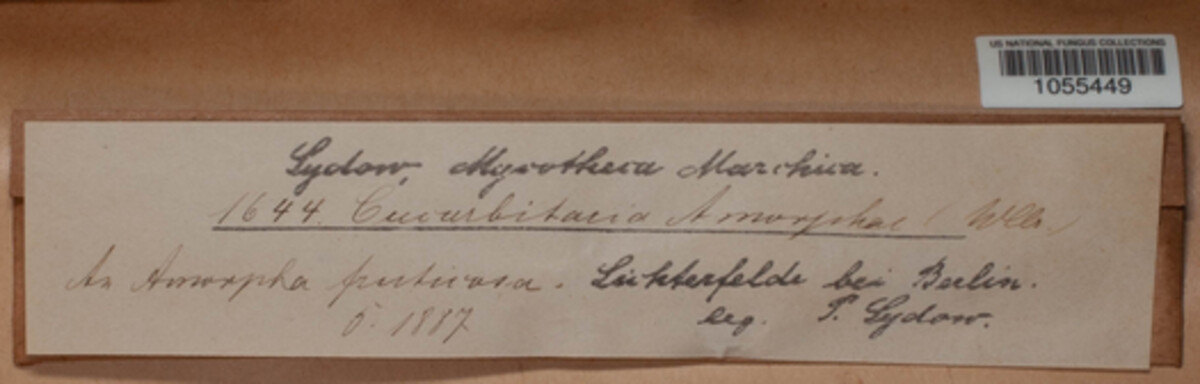 US NATIONAL FUNGUS COLLECTIONS
1055449
Sydow, Mycotheca Marchica.
1644. Cucurbitaria Amorphae (Wllr.)
An Amorpha fruticosa. Lichterfelde bei Berlin.
5. 1887 leg. P. Sydow.